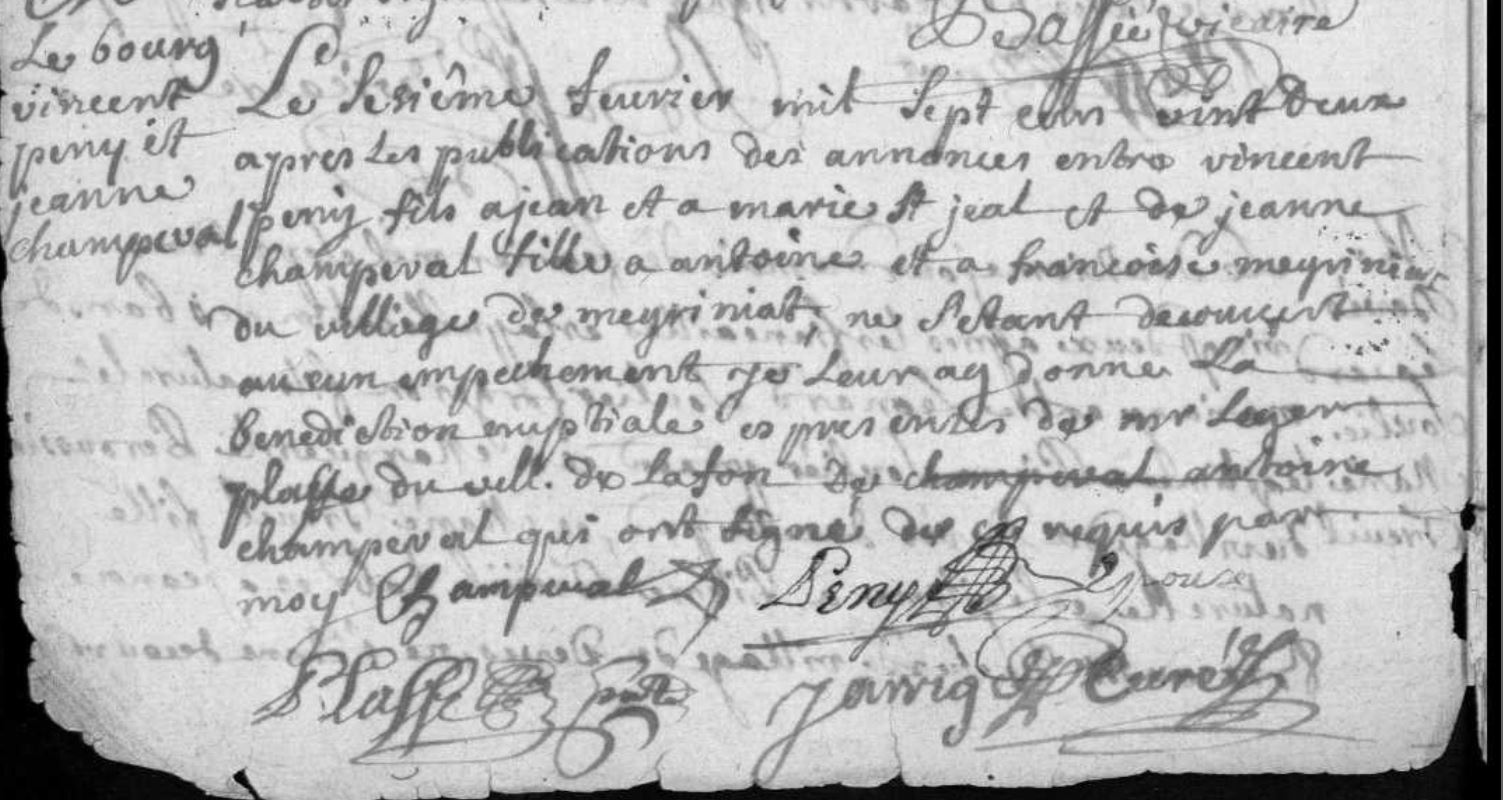 Bassié vicaire
Le bourg
vincent
peny et
jeanne
champeval
Le sesiême feurier mil sept cens vint deux
apres les publications des annonces entre vincent
peny fils a jean et a marie St jeal et de jeanne
champeval fille a antoine et a francoise meyriniat
du village de meyriniat ne s'etant decouvert
aucun empechement je leur ay donne la
benediction nuptiale es presences de mr Leger
plasse du vill. de lafon de champeval antoine
champeval qui ont signé de ce requis par
moy Champeval Peny Epoux
Plasse pnt Jarrig Curé